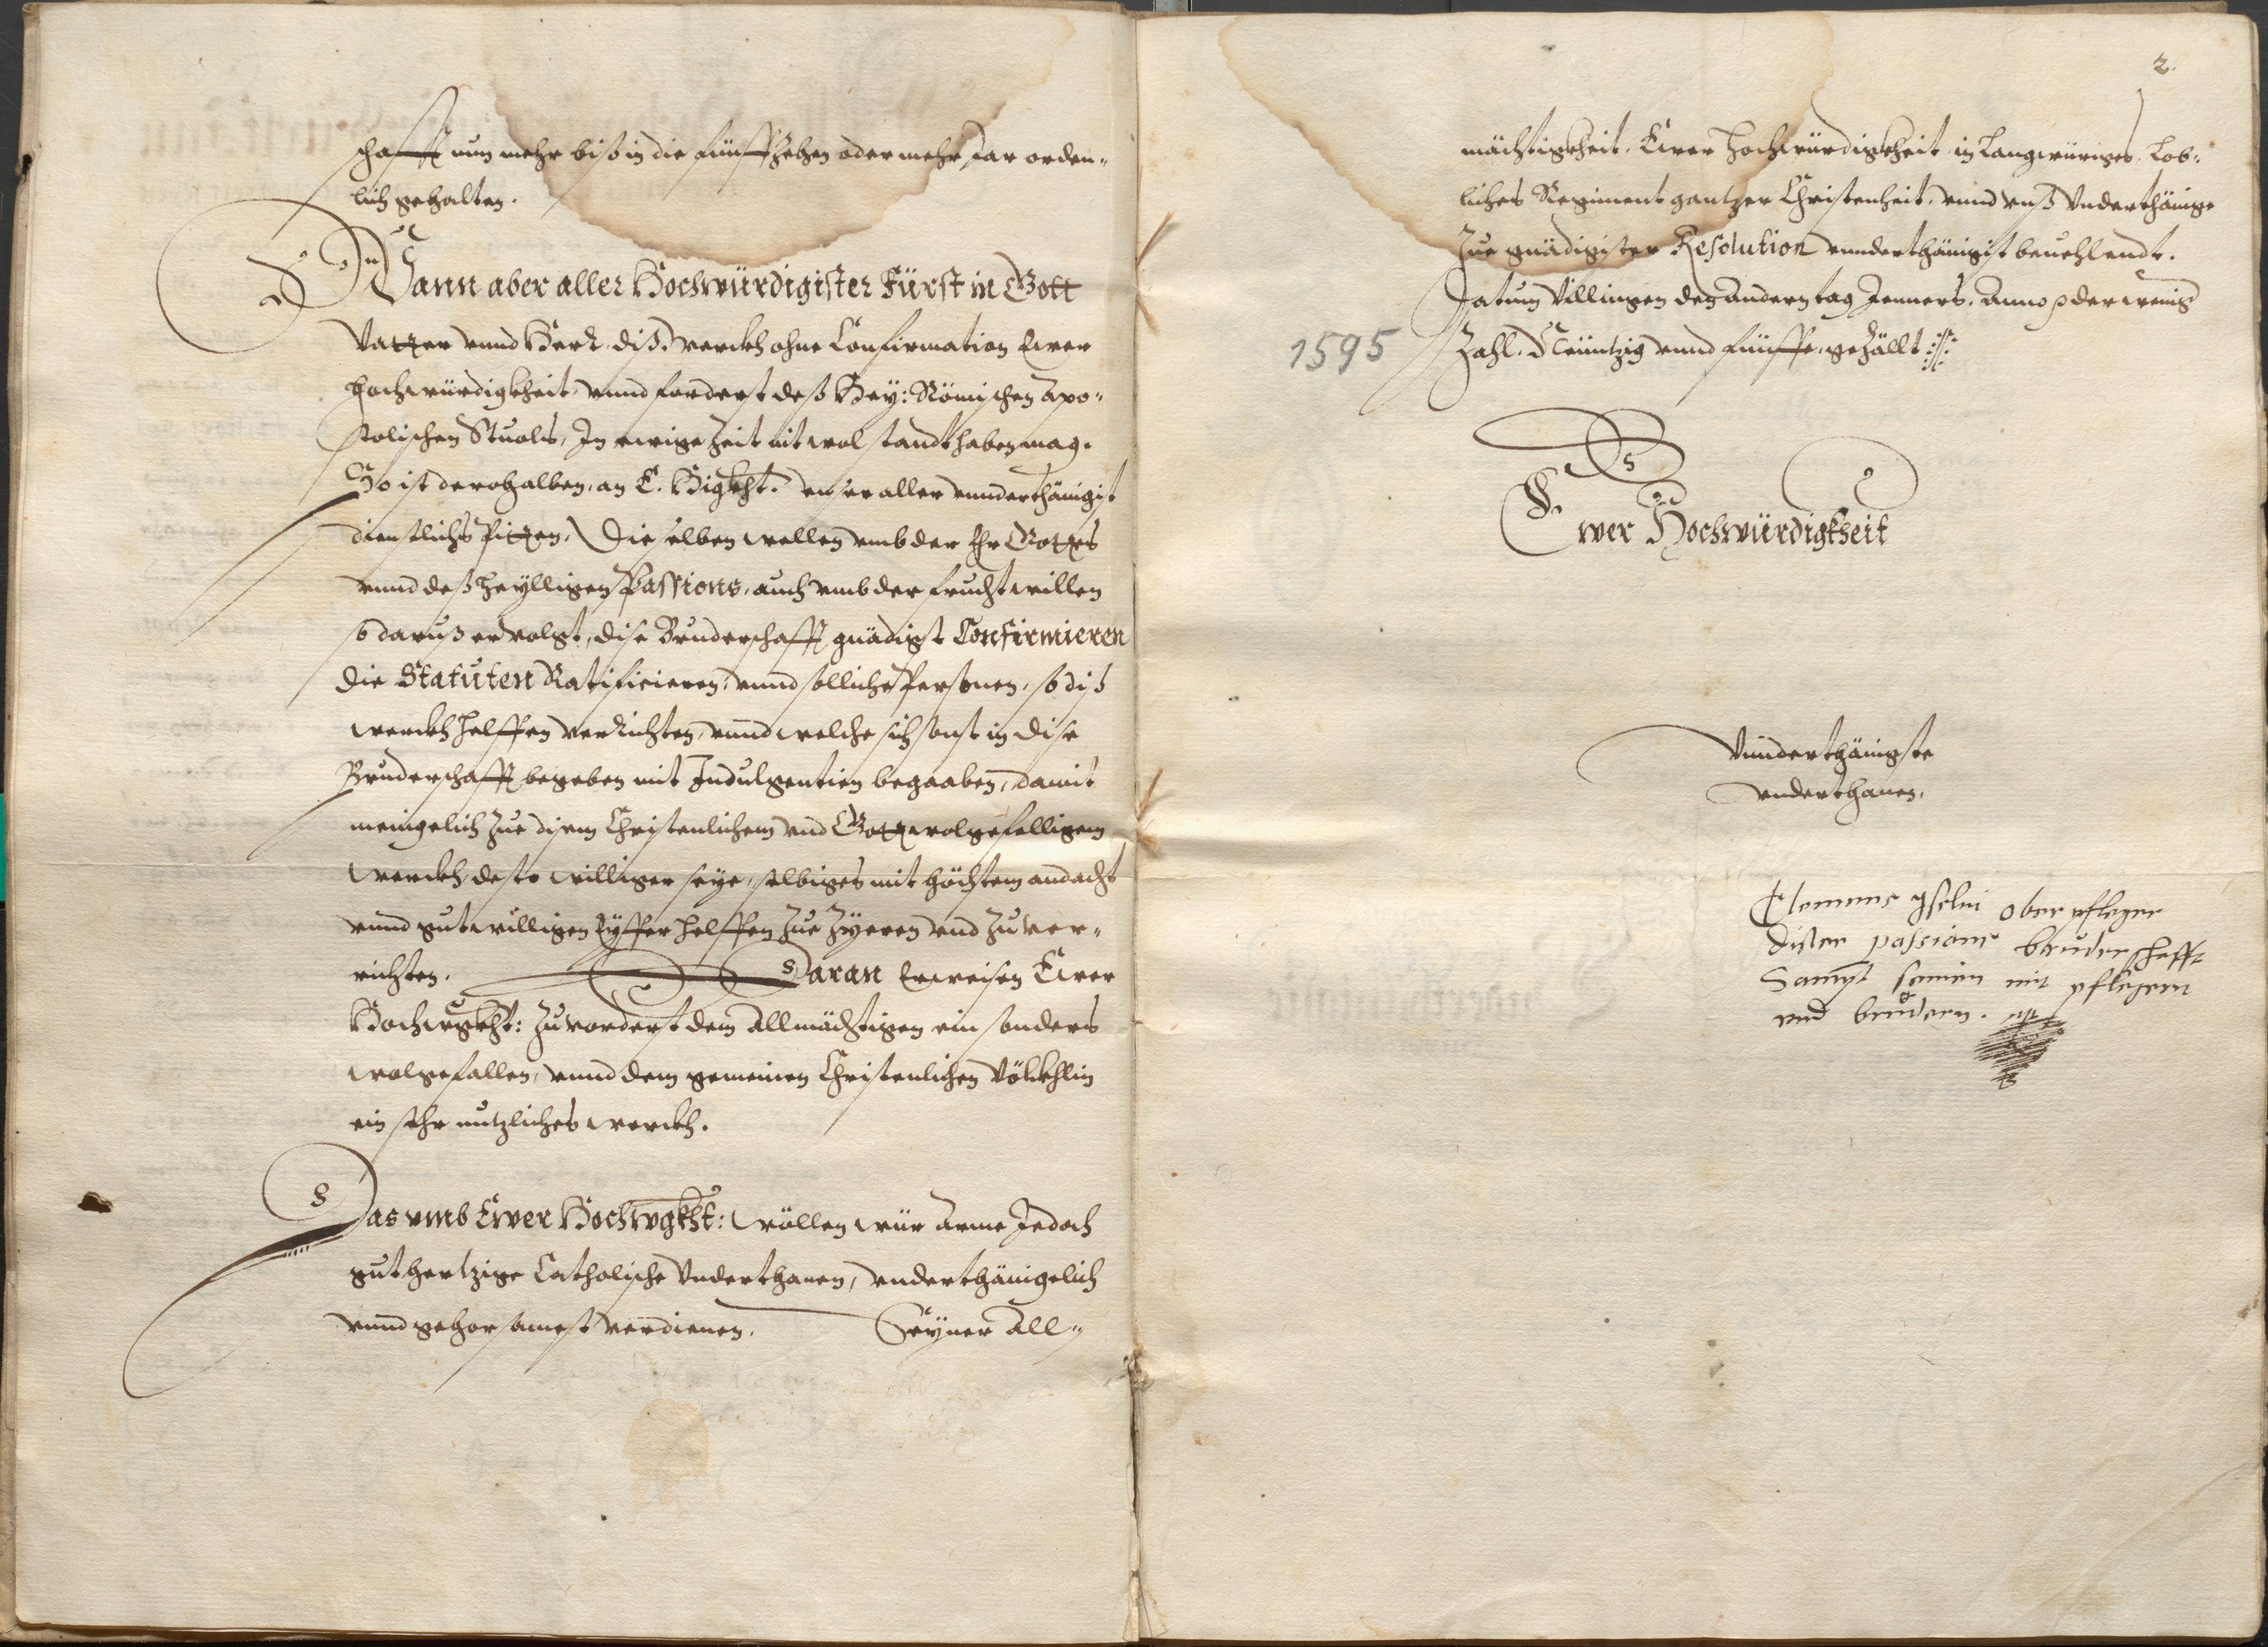 schafft nun mehr biß in die fünffzehen oder mehr Jar orden-
lich gehalten.
Wann aber aller Hochwürdigister Fürst in Gott
Vatter vnnd Herr diß werckh ohne Confirmation Ewer
Hochwürdigkheit, vnnd forderst deß Hey: Römischen Apo-
stolischen Stuols, In ewige Zeit nit wol standt haben mag.
So ist derohalben, an E. Higkht. vnser aller vnnderthänigist
dienstlichs pitten, Dieselben wellen vmb der Ehr Gottes
vnnd deß heylligen Passions, auch vmb der frucht willen
so daruß ervolgt, dise Bruderschafft gnädigst Confirmieren
die Statuten Ratificieren, vnnd solliche Personen, so diß
werckh helffen verrichten, vnnd welche sich sonst in dise
Bruderschafft begeben mit Indulgentien begaaben, damit
meingelich zue disem Christenlichem vnd Gott wolgefelligem
werckh desto williger seye, selbiges mit höchstem andacht
vnnd gutwilligen Eyffer helffen zue zyeren vnd zu ver-
richten. Daran Erweisen Ewer
Hochwgkht: zuvorderst dem Allmächtigen ein sonders
wolgefallen, vnnd dem gemeinen Christenlichen Völckhlin
ein sehr nutzliches werckh.
Das vmb Ewer Hochwgkht: wöllen wür arme Jedoch
guthertzige Catholische Vnderthanen, vnderthänigelich
vnnd gehorsamest verdienen. Seyner All-
2.
mächtigkheit, Ewer Hochwürdigkheit in Langwüriges Lob-
liches Regiment gantzer Christenheit, vnnd vnß Vnderthänige
Zue gnädigister Resolution vnnderthänigist beuehlendt.
Datum Villingen den Andern tag Jenners, Anno der wenig
1595
Zahl, Neüntzig vnnd fünffe gezällt
Ewer Hochwürdigkheit
Vnnderthänigste
vnderthanen,
Clemens yselin ober pfleger
diser passions bruderschafft
Sampt seinen mit pflegern
vnd bruodern.